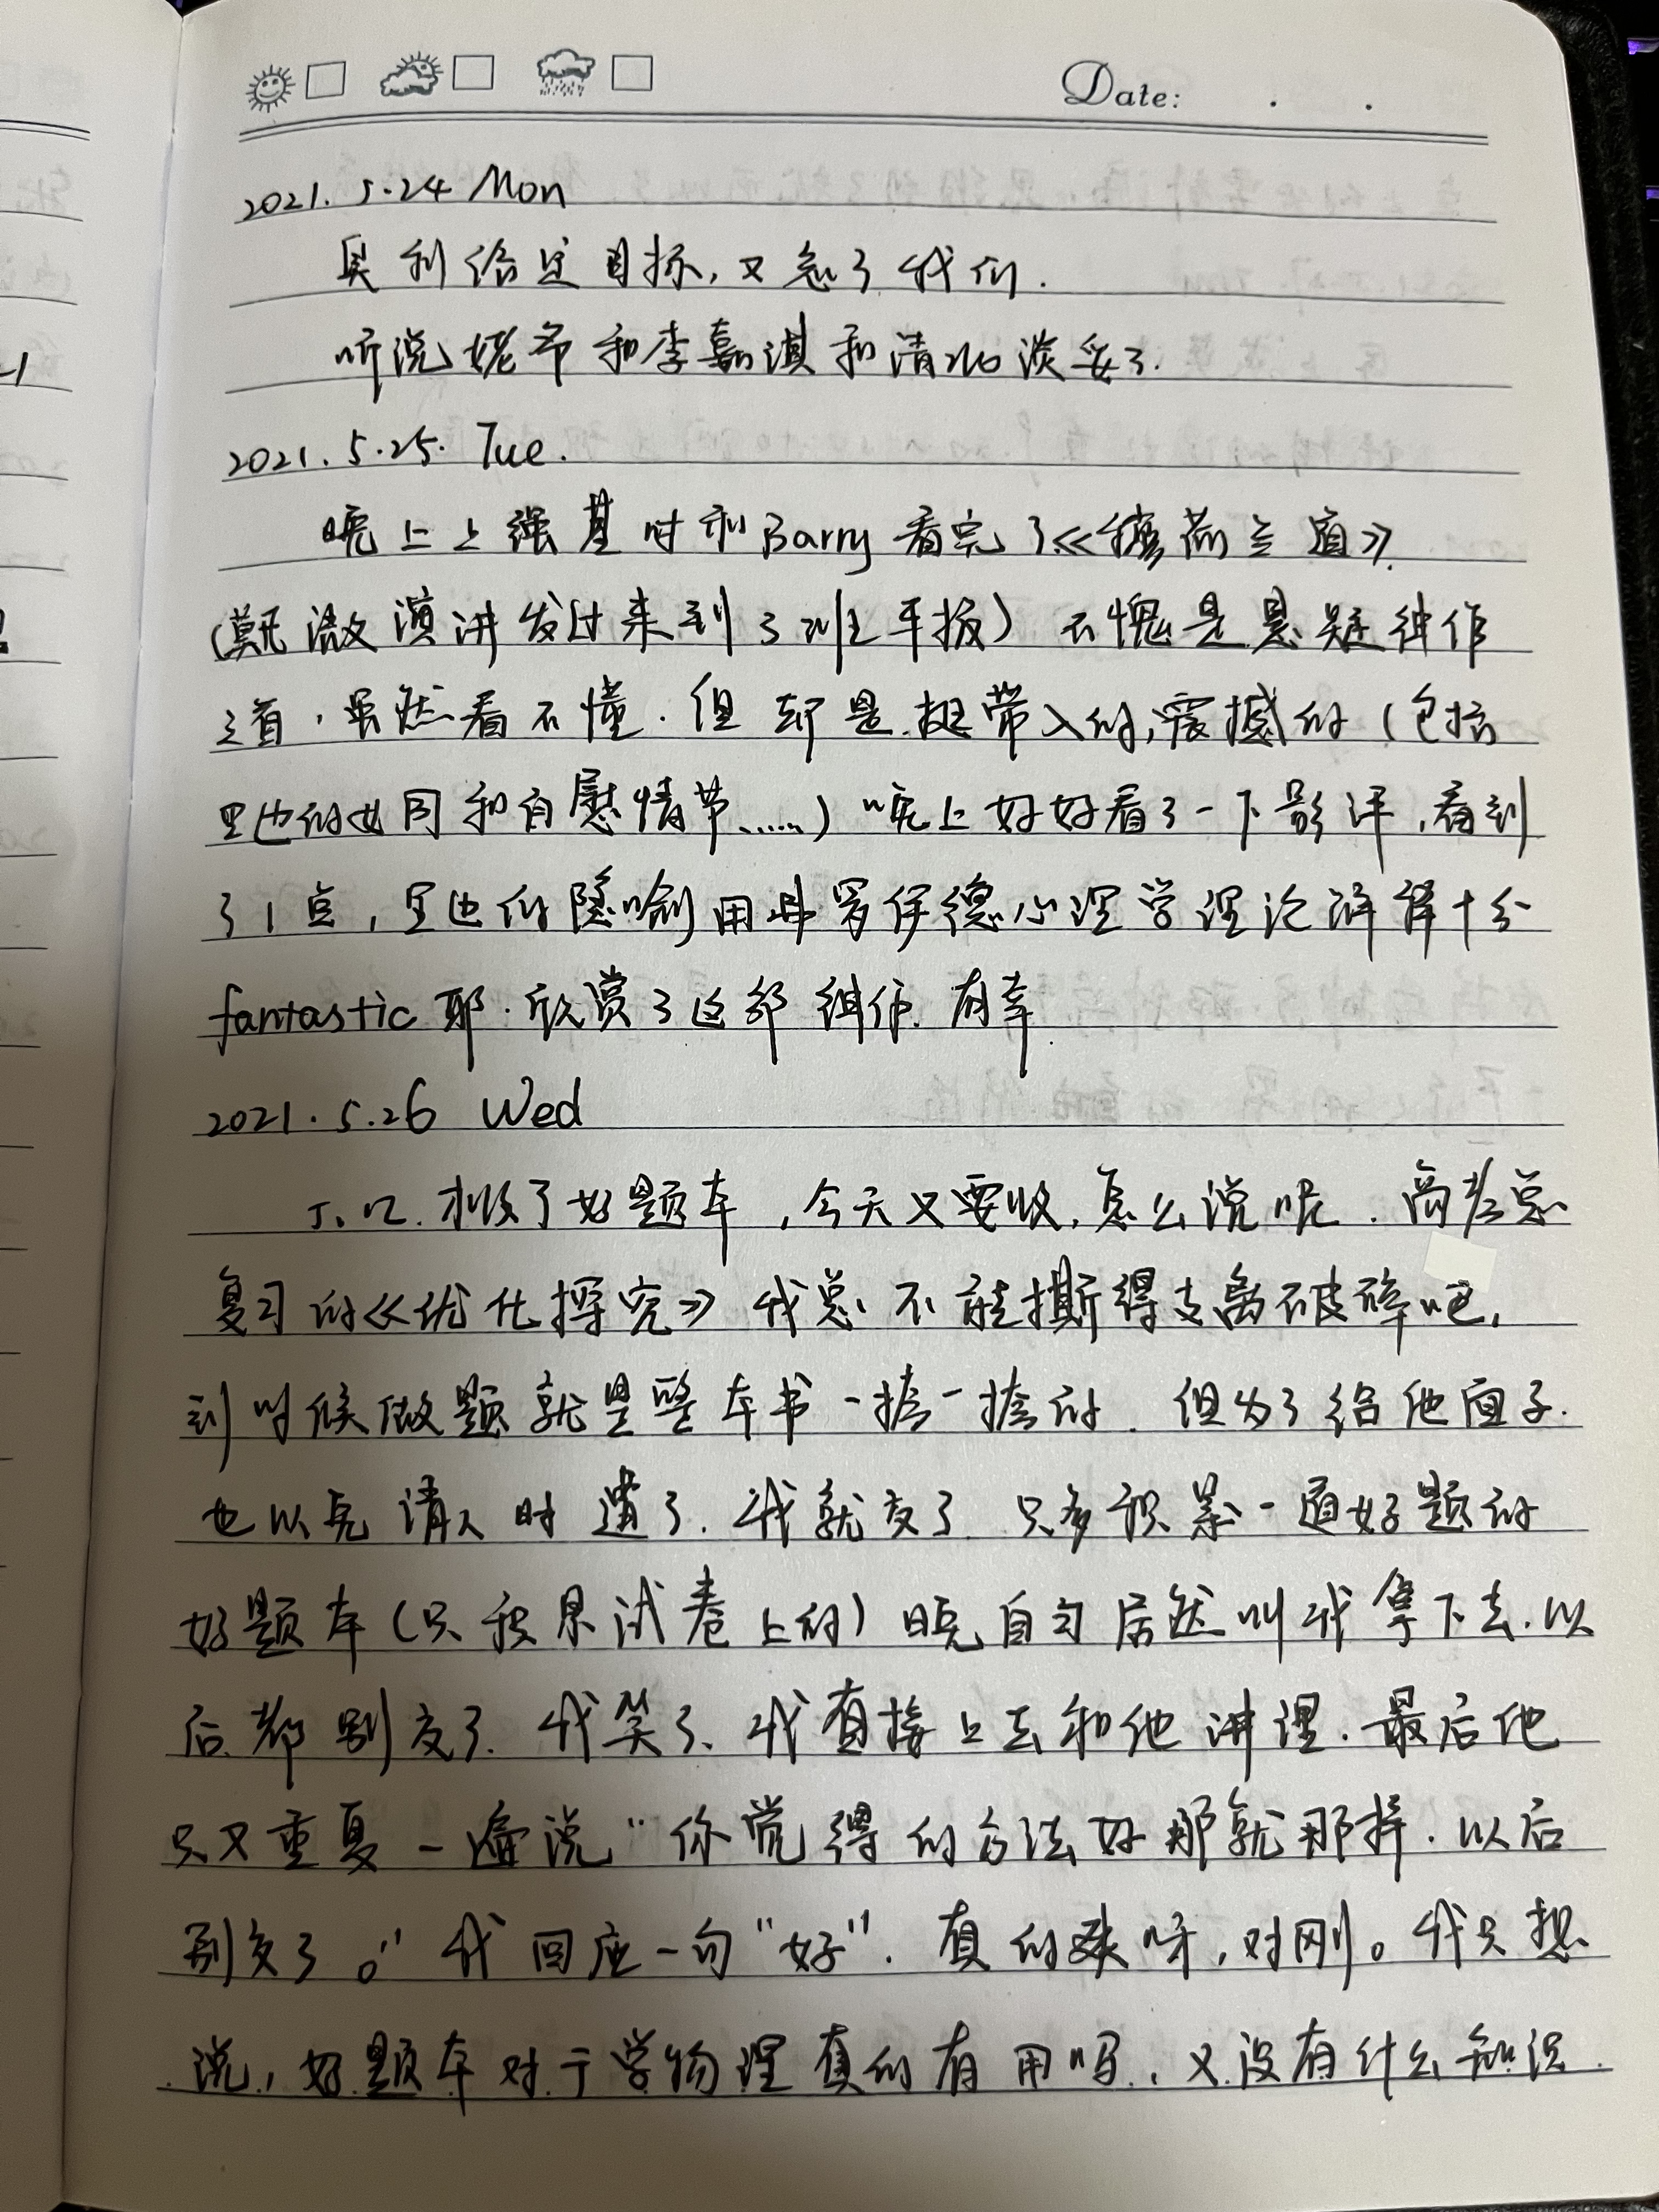 Date: . .
2021. 5.24 Mon
奥利给定目标,又忽了我们.
听说姥爷和李嘉淇和清北淡妥了.
2021. 5.25. Tue.
晚上上强基时和Barry看完了《穆荷兰道》
(莫 激演讲发过来到了班平板) 不愧是悬疑神作
之首,虽然看不懂.但却是挺带入的,震撼的(包括
里边的女同和自慰情节......)晚上好好看了一下影评,看到
了1点,里边的隐喻用弗罗伊德心理学理论解释十分
fantastic 耶.欣赏了这部神作.有幸.
2021. 5.26 Wed
J.Z.收了好题本,今天又要收,怎么说呢.高考总
复习的《优化探究》我总不能撕得支离破碎吧,
到时候做题就是整本书一摞一摞的.但为了给他面子.
也以免请人时遭了.我就交了.只多积累一道好题的
好题本(只积累试卷上的)晚自习居然叫我拿下去.以
后都别交了.我笑了、我直接上去和他讲理.最后他
只又重复一遍说“你觉得的方法好那就那样.以后
别交了。”我回应一句“好”.真的 呀,对刚。我只想
说,好题本对于学物理真的有用吗,又没有什么知识.